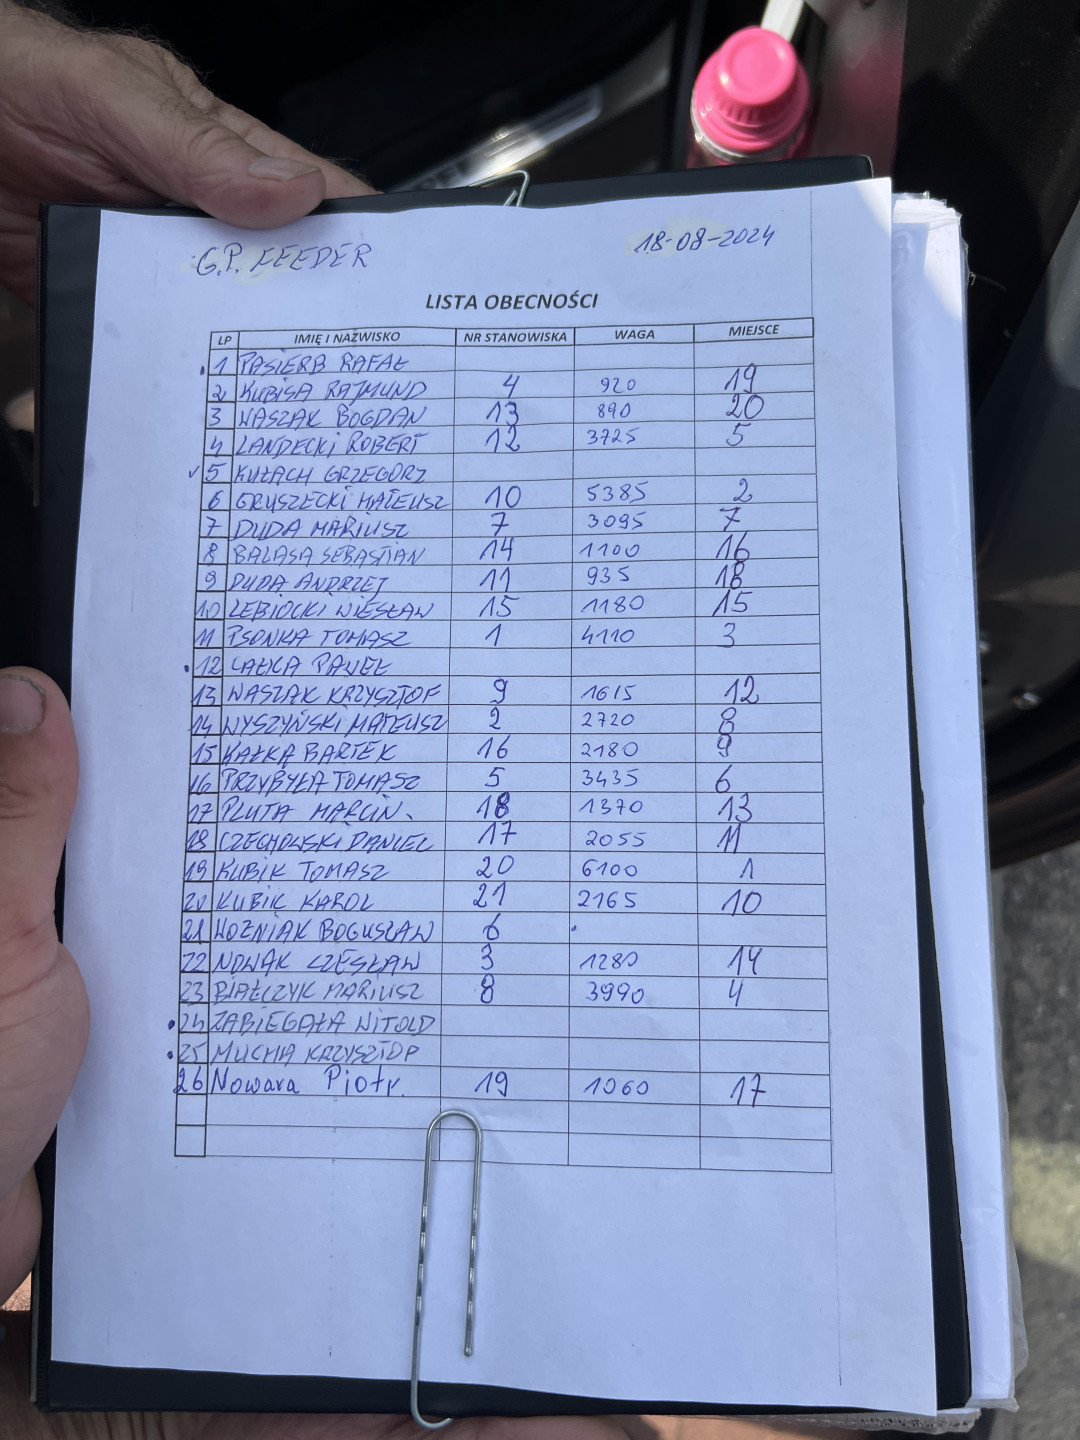 G.P. FEEDER 18-08-2024
LISTA OBECNOŚCI
LP IMIĘ I NAZWISKO NR STANOWISKA WAGA MIEJSCE
1 PASIERB RAFAŁ
2 KUBISA RAJMUND 4 920 19
3 WASZAK BOGDAN 13 890 20
4 LANDECKI ROBERT 12 3725 5
5 KUŁACH GRZEGORZ
6 GRUSZECKI MATEUSZ 10 5385 2
7 DUDA MARIUSZ 7 3095 7
8 BALASA SEBASTIAN 14 1100 16
9 DUDA ANDRZEJ 11 935 18
10 LEBIOCKI WIESŁAW 15 1180 15
11 PSONKA TOMASZ 1 4110 3
12 CAŁKA PAWEŁ
13 WASZAK KRZYSZTOF 9 1615 12
14 WYSZYŃSKI MATEUSZ 2 2720 8
15 KAŁKA BARTEK 16 2180 9
16 PRZYBYŁA TOMASZ 5 3435 6
17 PLUTA MARCIN 18 1370 13
18 CZECHOWSKI DANIEL 17 2055 11
19 KUBIK TOMASZ 20 6100 1
20 KUBIK KAROL 21 2165 10
21 WOZNIAK BOGUSŁAW 6
22 NOWAK CZESŁAW 3 1280 14
23 BIAŁCZYK MARIUSZ 8 3990 4
24 ZABIEGAŁA WITOLD
25 MUCHA KRZYSZTOF
26 Nowara Piotr. 19 1060 17